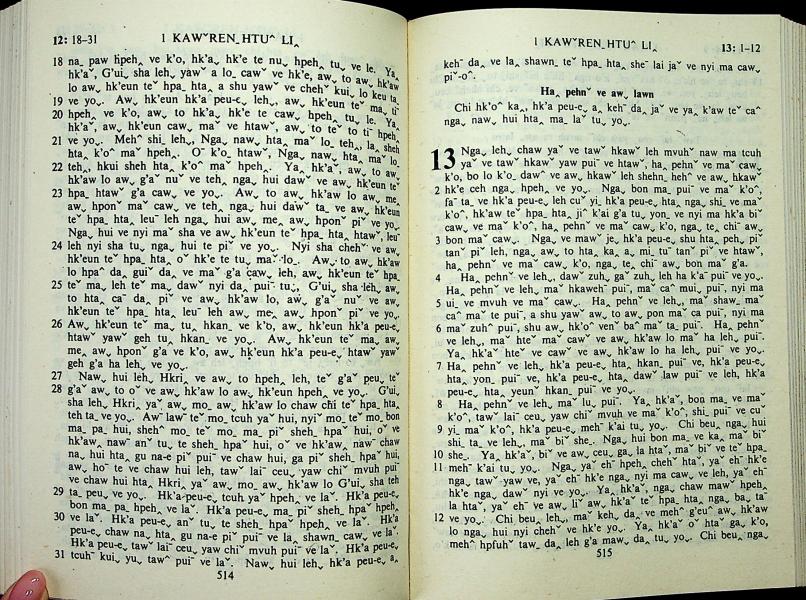 12: 18-31
1 KAWˇREN_HTU^ LIꞈ
18 na_ paw hpehꞈ ve k'o, hk'a˯ hk'e te nu˯ hpehꞈ tu˯ ve le. Yaꞈ
hk'aˇ, G'ui˯ sha leh˯ yawˇ a lo_ cawˇ ve hk'e, aw˯ to aw˯ hk'aw
lo aw˯ hk'eun teˇ hpa_ htaꞈ a shu yawˇ ve cheh^ kui˯ lo keu ta_
19 ve yo˯. Aw˯ hk'eun hk'a peu-e˯ leh˯, aw˯ hk'eun teˇ ma˯ ti^
20 hpehꞈ ve k'o, aw˯ to hk'a˯ hk'e te caw˯ hpehꞈ tu˯ le. Yaꞈ
hk'aˇ, aw˯ hk'eun caw˯ maˇ ve htaw˯, aw˯ to teˇ to ti^ hpehꞈ
21 ve yo˯. Meh^ shi_ leh˯, Nga˯ naw˯ htaꞈ maˇ lo_ teh˯, laꞈ sheh
htaꞈ k'o^ maˇ hpehꞈ. O^ k'o_ htaw˯, Nga˯ naw˯ htaꞈ maˇ lo_
22 teh˯, hkui sheh htaꞈ k'o^ maˇ hpehꞈ. Yaꞈ hk'aˇ, aw˯ to aw˯
hk'aw lo aw˯ g'aˇ nuˇ ve tehꞈ nga˯ hui dawˇ ve aw˯ hk'eun teˇ
23 hpa_ htawˇ g'a cawꞈ ve yo˯. Aw˯ to aw˯ hk'aw lo aw˯ meꞈ
aw˯ hpon^ maˇ caw˯ ve tehꞈ nga˯ hui dawˇ ta_ ve aw˯ hk'eun
teˇ hpa_ htaꞈ leu¯ leh nga˯ hui aw˯ meꞈ aw˯ hpon^ piˇ ve yo˯.
Nga˯ hui ve nyi maˇ sha ve aw˯ hk'eun teˇ hpa_ htaꞈ htaw˯ leu¯
24 leh nyi sha tu˯ nga˯ hui te pi^ ve yo˯. Nyi sha cheh^ ve aw˯
hk'eun teˇ hpa_ htaꞈ o^ hk'e te tu˯ maˇ lo_. Aw˯ to aw˯ hk'aw
lo hpa^ da˯ gui^ da˯ ve maˇ g'a cawꞈ leh, aw˯ hk'eun teˇ hpa_
25 teˇ ma˯ leh teˇ ma˯ dawˇ nyi da˯ pui¯ tu˯, G'ui˯ sha leh˯ aw˯
to htaꞈ ca¯ da˯ piˇ ve aw˯ hk'aw lo, aw˯ g'aˇ nuˇ ve aw˯
hk'eun teˇ hpa_ htaꞈ leu¯ leh aw˯ meꞈ aw˯ hpon^ piˇ ve yo˯.
26 Aw˯ hk'eun teˇ ma˯ tu˯ hkan_ ve k'o, aw˯ hk'eun hk'a peu-e˯
htawˇ yawˇ geh tu˯ hkan_ ve yo˯. Aw˯ hk'eun teˇ ma˯ aw˯
meꞈ aw˯ hpon^ g'a ve k'o, aw˯ hk'eun hk'a peu-e˯ htawˇ yawˇ
geh g'a ha leh˯ ve yo˯.
27 Naw˯ hui leh˯ Hkriꞈ ve aw˯ to hpeh˯ leh˯ teˇ g'aˇ peu˯ teˇ
28 g'aˇ aw˯ to oˇ ve aw˯ hk'aw lo aw˯ hk'eun hpehꞈ ve yo˯. G'ui˯
sha leh˯ Hkriꞈ yaˇ aw˯ mo˯ aw˯ hk'aw lo chaw chi teˇ hpa_ htaꞈ
teh ta_ ve yo˯. Awˇ lawˇ te^ mo_ tcuh yaˇ hui, nyi^ mo_ te^ mo_ bon
ma_ pa_ hui, sheh^ mo_ te^ mo_ ma_ pi^ sheh_ hpaˇ hui, oˇ ve
hk'aw˯ naw¯ an^ tu˯ te sheh_ hpaˇ hui, oˇ ve hk'aw˯ naw¯ chaw
na˯ hui htaꞈ gu na-e piˇ pui¯ ve chaw hui, ga piˇ sheh_ hpaˇ hui,
aw˯ ho¯ te ve chaw hui leh, tawˇ lai¯ ceu˯ yaw chiˇ mvuh pui¯
ve chaw hui htaꞈ Hkriꞈ yaˇ aw˯ mo˯ aw˯ hk'aw lo G'ui˯ sha teh
29 ta_ peu˯ ve yo˯. Hk'a peu-e˯ tcuh yaˇ hpehꞈ ve laˇ. Hk'a peu-e˯
bon ma_ pa_ hpehꞈ ve laˇ. Hk'a peu-e˯ ma_ pi^ sheh_ hpaˇ hpehꞈ
30 ve laˇ. Hk'a peu-e˯ an^ tu˯ te sheh_ hpaˇ hpehꞈ ve laˇ. Hk'a
peu-e˯ chaw na˯ htaꞈ gu na-e piˇ pui¯ ve laꞈ shawn_ caw˯ ve laˇ.
Hk'a peu-e˯ tawˇ lai¯ ceu˯ yaw chiˇ mvuh pui¯ ve laˇ. Hk'a peu-e˯
31 tcuh^ kui˯ yu˯ tawˇ pui¯ ve laˇ. Naw˯ hui leh˯ hk'a peu-e˯ aꞈ
514
1 KAWˇREN_HTU^ LIꞈ
13: 1-12
keh¯ da˯ ve laꞈ shawn_ teˇ hpa_ htaꞈ she¯ lai jaˇ ve nyi ma caw˯
piˇ-o^.
Haꞈ pehnˇ ve aw˯ lawn
Chi hk'o^ kaꞈ hk'a peu-e˯ aꞈ keh¯ da˯ jaˇ ve yaꞈ k'aw te ca^
nga˯ naw˯ hui htaꞈ ma_ laˇ tu˯ yo˯.
13 Nga˯ leh˯ chaw yaˇ ve tawˇ hkaw leh mvuhˇ naw ma tcuh
yaˇ ve tawˇ hkaw yaw pui¯ ve htaw˯, haꞈ pehnˇ ve maˇ caw˯
k'o, bo lo k'o_ dawˇ ve aw˯ hkaw leh shehn_ heh^ ve aw˯ hkawˇ
2 hk'e ceh nga˯ hpehꞈ ve yo˯. Nga˯ bon ma_ pui¯ ve maˇ k'o^,
fa¯ ta_ ve hk'a peu-e˯ leh cuˇ yi_ hk'a peu-e˯ htaꞈ nga˯ shi_ ve maˇ
k'o^, hk'aw teˇ hpa_ htaꞈ ji^ k'ai g'a tu˯ yon_ ve nyi ma hk'a biˇ
caw˯ ve maˇ k'o^, haꞈ pehnˇ ve maˇ caw˯ k'o, nga˯ te˯ chi¯ aw˯
3 bon maˇ caw˯. Nga˯ ve mawˇ je˯ hk'a peu-e˯ shu htaꞈ peh˯ pi^
tan^ piˇ leh, nga˯ aw˯ to htaꞈ ka˯ a˯ mi˯ tu¯ tan^ piˇ ve htaw˯,
haꞈ pehnˇ ve maˇ caw˯ k'o, nga˯ te˯ chi¯ aw˯ bon maˇ g'a.
4 Haꞈ pehnˇ ve leh˯, dawˇ zuh˯ gaˇ zuh˯ leh ha k'a¯ pui¯ ve yo˯.
Haꞈ pehnˇ ve leh˯ maˇ hkaweh¯ pui¯, maˇ ca^ mui˯ pui¯, nyi ma
5 ui˯ ve mvuh ve maˇ caw˯. Haꞈ pehnˇ ve leh˯, maˇ shaw_ maˇ
ca^ ma te pui¯, a shu yawˇ aw˯ to aw˯ pon maˇ ca pui¯, nyi ma
6 maˇ zuh^ pui¯, shu aw˯ hk'o^ ven^ ba^ maˇ ta_ pui¯. Haꞈ pehnˇ
ve leh˯ maˇ hteˇ maˇ caw ve aw˯ hk'aw lo maˇ ha leh˯ pui¯.
Yaꞈ hk'aˇ hteˇ ve caw ve aw˯ hk'aw lo ha leh˯ pui¯ ve yo˯.
7 Haꞈ pehnˇ ve leh˯ hk'a peu-e˯ htaꞈ hkan_ pui¯ ve, hk'a peu-e˯
htaꞈ yon_ pui¯ ve, hk'a peu-e˯ htaꞈ daw˯ law pui¯ ve leh, hk'a
peu-e˯ htaꞈ yeun^ hkan_ pui¯ ve yo˯.
8 Haꞈ pehnˇ ve leh˯ maˇ lu˯ pui¯. Yaꞈ hk'aˇ, bon ma_ ve maˇ
k'o^, tawˇ lai¯ ceu˯ yaw chiˇ mvuh ve maˇ k'o^, shi_ pui¯ ve cuˇ
9 yi_ maˇ k'o^, hk'a peu-e˯ meh^ k'ai tu˯ yo˯. Chi beu˯ nga˯ hui
shi_ ta_ ve leh˯ maˇ bi^ she_. Nga˯ hui bon ma_ ve kaꞈ maˇ bi^
10 she_. Yaꞈ hk'aˇ, bi^ ve aw˯ ceu˯ ga˯ la hta^, maˇ bi^ ve teˇ hpa_
11 meh^ k'ai tu˯ yo˯. Nga˯ yaˇ eh¯ hpehꞈ cheh^ hta^, yaˇ eh¯ hk'e
nga˯ tawˇ yaw ve, yaˇ eh¯ hk'e nga˯ nyi ma caw˯ ve leh, yaˇ eh¯
hk'e nga˯ dawˇ nyi ve yo˯. Yaꞈ hk'aˇ, nga˯ chaw mawˇ hpehꞈ
la hta^, yaˇ eh¯ ve aw˯ liˇ aw˯ hk'aˇ teˇ hpa_ htaꞈ nga˯ ba˯ ta¯
12 ve yo˯. Chi beu˯ leh˯ maˇ keh˯ da˯ ve meh^ g'eu^ aw˯ hk'aw
lo nga˯ hui nyi cheh^ ve hk'e yo˯. Yaꞈ hk'aˇ oˇ hta^ ga˯ k'o,
meh^ hpfuhˇ taw_ da˯ leh g'a maw˯ da˯ tu˯ yo˯. Chi beu˯ nga˯
515